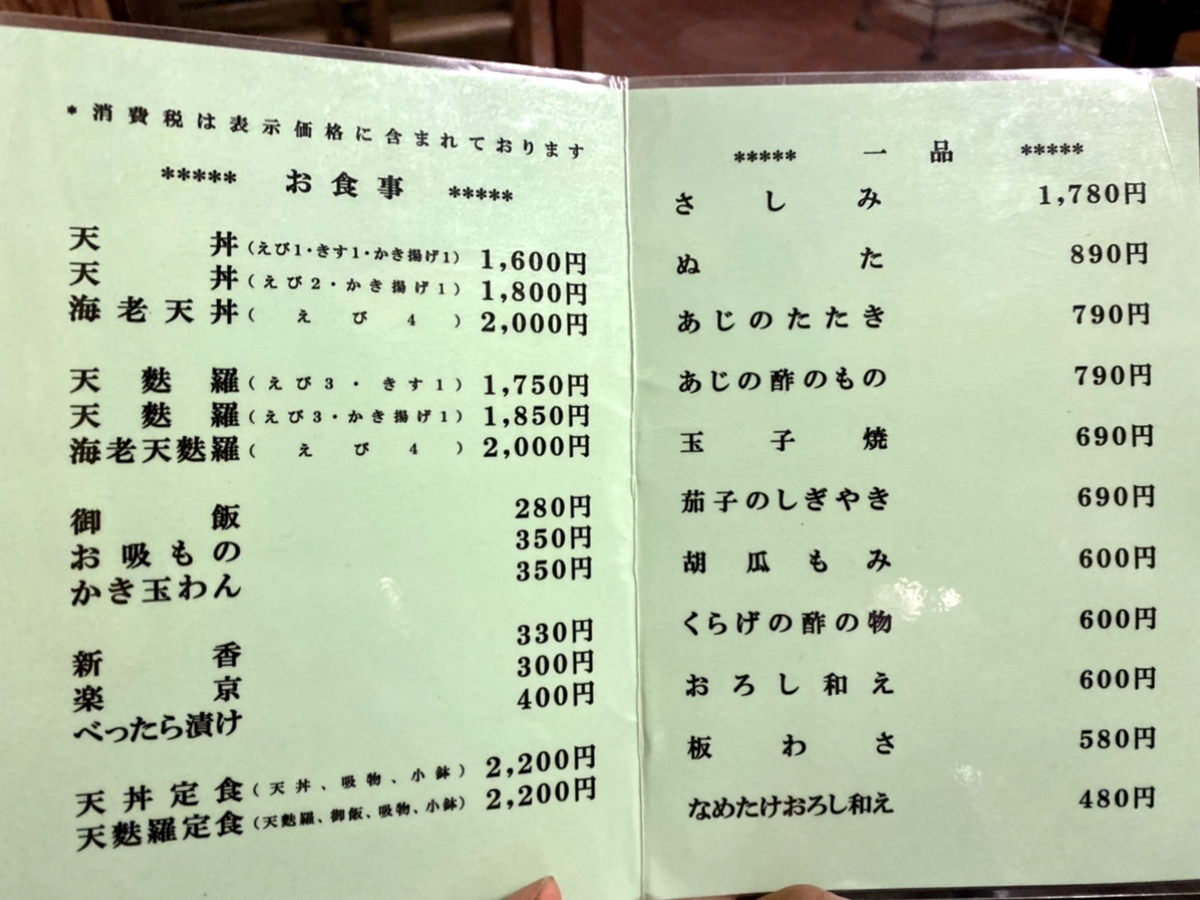 *消費税は表示価格に含まれております
***** お食事 *****
天丼(えび1・きす1・かき揚げ1) 1,600円
天丼(えび2・かき揚げ1) 1,800円
海老天丼(えび4) 2,000円
天麩羅(えび3・きす1) 1,750円
天麩羅(えび3・かき揚げ1) 1,850円
海老天麩羅(えび4) 2,000円
御飯 280円
お吸もの 350円
かき玉わん 350円
新香 330円
楽京 300円
べったら漬け 400円
天丼定食(天丼、吸物、小鉢) 2,200円
天麩羅定食(天麩羅、御飯、吸物、小鉢) 2,200円
***** 一品 *****
さしみ 1,780円
ぬた 890円
あじのたたき 790円
あじの酢のもの 790円
玉子焼 690円
茄子のしぎやき 690円
胡瓜もみ 600円
くらげの酢の物 600円
おろし和え 600円
板わさ 580円
なめたけおろし和え 480円